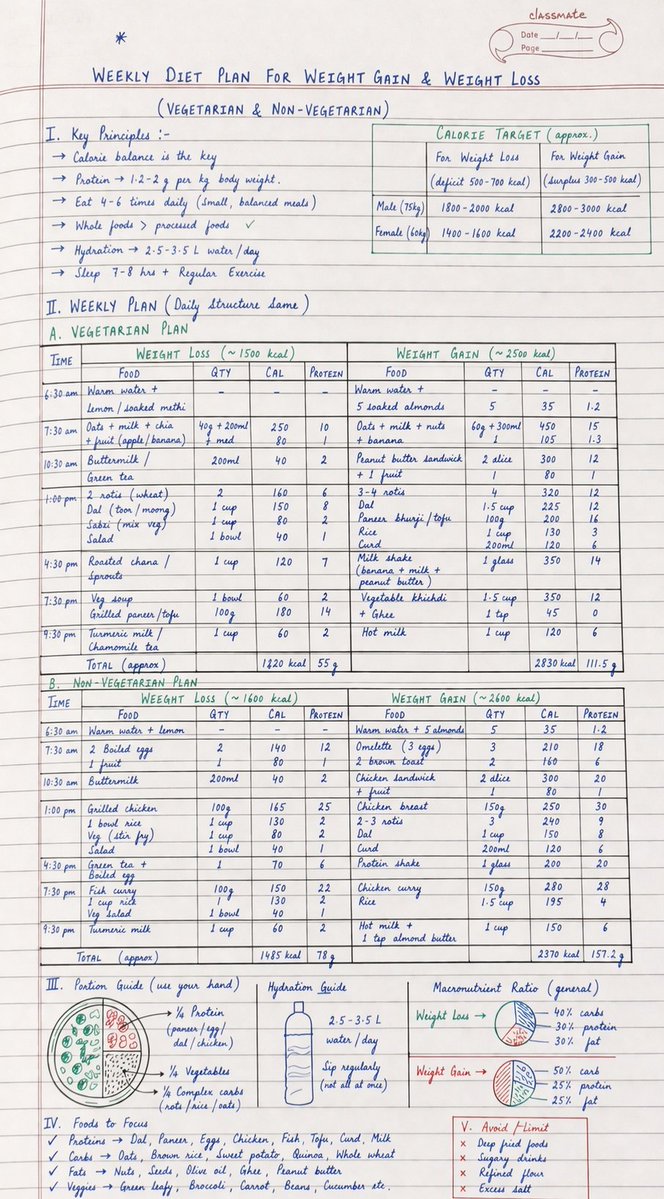 classmate
Date ___/___/___
Page ________
*
WEEKLY DIET PLAN FOR WEIGHT GAIN & WEIGHT LOSS
(VEGETARIAN & NON-VEGETARIAN)
I. Key Principles :-
→ Calorie balance is the key
→ Protein → 1.2-2 g per kg body weight.
→ Eat 4-6 times daily (small, balanced meals)
→ Whole foods > processed foods ✓
→ Hydration → 2.5-3.5 L water/day
→ Sleep 7-8 hrs + Regular Exercise
CALORIE TARGET (approx.)
For Weight Loss For Weight Gain
(deficit 500-700 kcal) (surplus 300-500 kcal)
Male (75kg) 1800-2000 kcal 2800-3000 kcal
Female (60kg) 1400-1600 kcal 2200-2400 kcal
II. WEEKLY PLAN (Daily Structure Same)
A. VEGETARIAN PLAN
TIME WEIGHT LOSS (~1500 kcal) WEIGHT GAIN (~2500 kcal)
FOOD QTY CAL PROTEIN FOOD QTY CAL PROTEIN
6:30 am Warm water + - - - Warm water + - - -
lemon/soaked methi 5 soaked almonds 5 35 1.2
7:30 am Oats + milk + chia 40g + 200ml 250 10 Oats + milk + nuts 60g + 300ml 450 15
+ fruit (apple/banana) + med 80 1 + banana 1 105 1.3
10:30 am Buttermilk / 200ml 40 2 Peanut butter sandwich 2 alice 300 12
Green tea + 1 fruit 1 80 1
1:00 pm 2 rotis (wheat) 2 160 6 3-4 rotis 4 320 12
Dal (toor/moong) 1 cup 150 8 Dal 1.5 cup 225 12
Sabzi (mix veg) 1 cup 80 2 Paneer bhurji/tofu 100g 200 16
Salad 1 bowl 40 1 Rice 1 cup 130 3
Curd 200ml 120 6
4:30 pm Roasted chana / 1 cup 120 7 Milk shake 1 glass 350 14
Sprouts (banana + milk +
peanut butter)
7:30 pm Veg soup 1 bowl 60 2 Vegetable khichdi 1.5 cup 350 12
Grilled paneer/tofu 100g 180 14 + Ghee 1 tsp 45 0
9:30 pm Turmeric milk / 1 cup 60 2 Hot milk 1 cup 120 6
Chamomile tea
TOTAL (approx) kcal 55 g 2830 kcal 111.5 g
B. NON-VEGETARIAN PLAN
TIME WEEIGHT LOSS (~1600 kcal) WEIGHT GAIN (~2600 kcal)
FOOD QTY CAL PROTEIN FOOD QTY CAL PROTEIN
6:30 am Warm water + lemon - - - Warm water + 5 almonds 5 35 1.2
7:30 am 2 Boiled eggs 2 140 12 Omelette (3 eggs) 3 210 18
1 fruit 1 80 1 2 brown toast 2 160 6
10:30 am Buttermilk 200ml 40 2 Chicken sandwich 2 alice 300 20
+ fruit 1 80 1
1:00 pm Grilled chicken 100g 165 25 Chicken breast 150g 250 30
1 bowl rice 1 cup 130 2 2-3 rotis 3 240 9
Veg (stir fry) 1 cup 80 2 Dal 1 cup 150 8
Salad 1 bowl 40 1 Curd 200ml 120 6
4:30 pm Green tea + 1 70 6 Protein shake 1 glass 200 20
Boiled egg
7:30 pm Fish curry 100g 150 22 Chicken curry 150g 280 28
1 cup rice 1 130 2 Rice 1.5 cup 195 4
Veg salad 1 bowl 40 1
9:30 pm Turmeric milk 1 cup 60 2 Hot milk + 1 cup 150 6
1 tsp almond butter
TOTAL (approx) 1485 kcal 78 g 2370 kcal 157.2 g
III. Portion Guide (use your hand)
→ ¼ Protein
(paneer/egg/
dal/chicken)
→ ¼ Vegetables
→ ¼ Complex carbs
(rots/rice/oats)
Hydration Guide
2.5-3.5 L
water/day
Sip regularly
(not all at once)
Macronutrient Ratio (general)
Weight Loss → 40% carbs
30% protein
30% fat
Weight Gain → 50% carb
25% protein
25% fat
IV. Foods to Focus
✓ Proteins → Dal, Paneer, Eggs, Chicken, Fish, Tofu, Curd, Milk
✓ Carbs → Oats, Brown rice, Sweet potato, Quinoa, Whole wheat
✓ Fats → Nuts, Seeds, Olive oil, Ghee, Peanut butter
✓ Veggies → Green leafy, Broccoli, Carrot, Beans, Cucumber etc.
V. Avoid/Limit
× Deep fried foods
× Sugary drinks
× Refined flour
× Excess salt